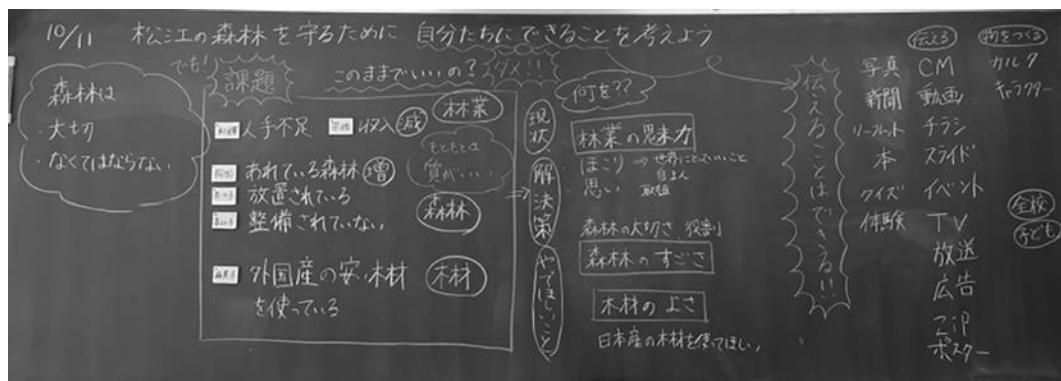 10/11 松江の森林を守るために 自分たちにできることを考えよう
森林は
・大切
・なくてはならない
でも!
課題
このままでいいの?
ダメ!!
人手不足
収入減
林業
もともとは
質がいい
あれている森林 増
放置されている
整備されていない
森林
外国産の安い木材
を使っている
木材
現状
解決策
やってほしいこと
何を??
林業の魅力
ほこり ⇒
思い
森林の大切さ、役割
森林のすごさ
木材のよさ
日本産の木材を使ってほしい
伝えることはできる!!
写真
新聞
リーフレット
本
クイズ
体験
伝える
CM
動画
チラシ
スライド
イベント
TV
放送
広告
ZiP
ポスター
物をつくる
カルタ
キャラクター
全校
子ども